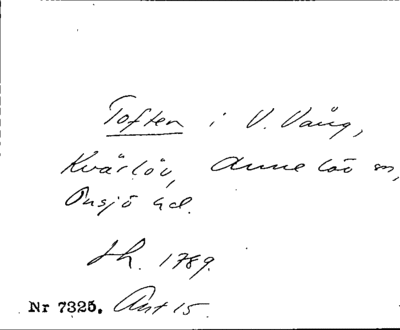 Toften i V. Vång,
Kvärlöv, Annelöv sn,
Onsjö hd.
Sh. 1789.
Nr 7325. Ant 15.